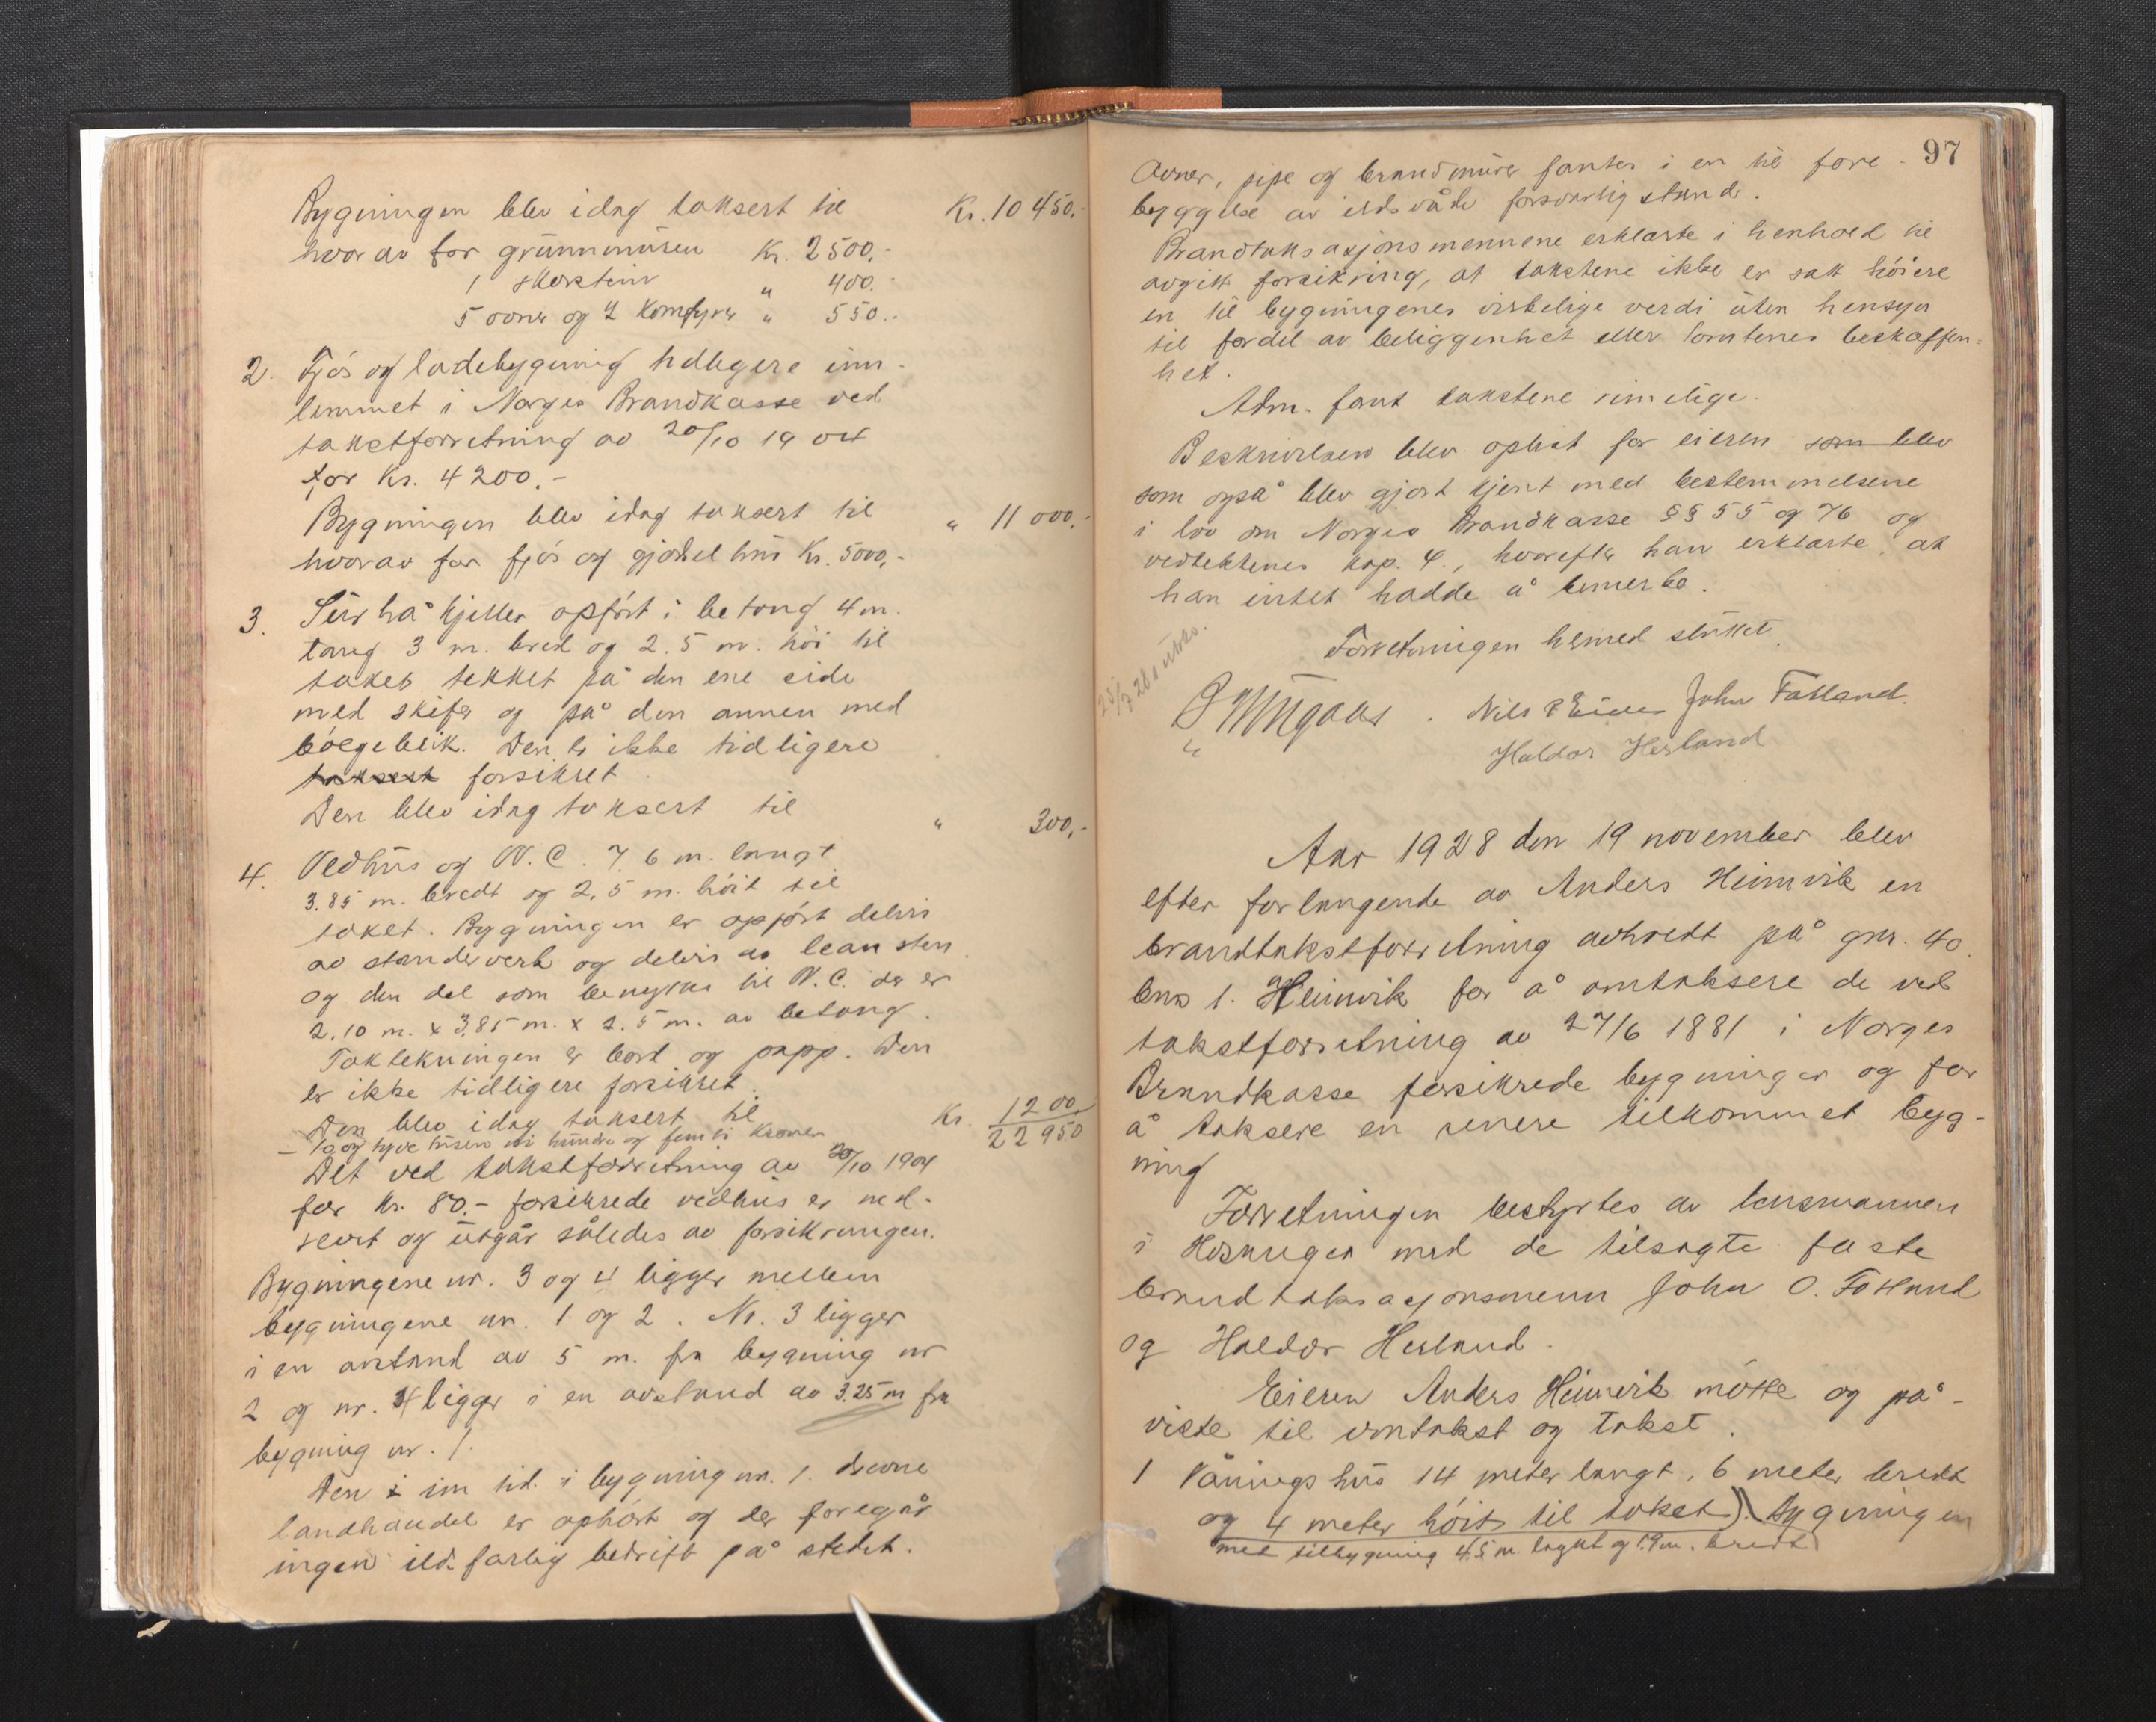 Bygningen blev idag taksert til Kr. 10 450,-
hvorav for grunnmuren Kr. 2500,-
1 skorstein " 400.-
5 ovner og 2 komfyrer " 550.-
2. Fjós og ladebygning tidligere inn-
lemmet i Norges Brandkasse ved
takstforretning av 20/10 1904
for Kr. 4200.-
Bygningen blev idag taksert til " 11 000,-
hvorav for fjós og gjødselhus Kr. 5000,-
3. Surhåkjeller opfört i betong 4 m.
lang 3 m. bred og 2.5 m. höi til
taket tekket på den ene side
med skifer og på den annen med
bölgeblik. Den er ikke tidligere
taksert forsikret
Den blev idag taksert til " 300,-
4. Vedhus og W.C. 7.6 m. langt
3.85 m. bredt og 2,5 m. höit til
taket. Bygningen er opfört delvis
av stenderverk og delvis av lean sten
og den del som benyttes til W.C. der er
2.10 m. x 3,85 m. x 2.5 m. av betong.
Taktekningen er bord og papp. Den
er ikke tidligere forsikret.
Den blev idag taksert til Kr. 1200,-
- To og tyve tusen ni hundre og femti kroner 22 950
Det ved takstforretning av 20/10 1904
for Kr. 80.- forsikrede vedhus er ned-
revet og utgår således av forsikringen.
Bygningene nr. 3 og 4 ligger mellem
bygningene nr. 1 og 2. Nr. 3 ligger
i en avstand av 5 m. fra bygning nr
2 og nr. 4 ligger i en avstand av 3.25 m fra
bygning nr. 1.
Den i sin tid i bygning nr. 1. drevne
landhandel er ophört og der foregår
ingen ildsfarlig bedrift på stedet.
97
Ovner, pipe og brandmurer fantes i en til fore-
byggelse av ildsvåde forsvarlig stand.
Brandtaksasjonsmennene erklærte i henhold til
avgitt forsikring, at takstene ikke er satt höiere
en til bygningenes virkelige verdi uten hensyn
til fordel av beliggenhet eller tomtenes beskaffen-
het.
Adm. fant takstene rimelige.
Beskrivelsen blev oplest for eieren som blev
som også blev gjort kjent med bestemmelsene
i lov om Norges Brandkasse §§ 55 og 76 og
vedtektenes kap. 4., hvorefter han erklærte, at
han intet hadde å bemerke.
Forretningen hermed sluttet.
Nils Eide John Fatland.
Haldor Hesland
Aar 1928 den 19 november blev
efter forlangende av Anders Heimvik en
brandtakstforretning avholdt på gnr. 40.
bnr 1. Heimvik for å omtaksere de ved
takstforretning av 27/6 1881 i Norges
Brandkasse forsikrede bygninger og for
å taksere en senere tilkommet byg-
ning
Forretningen bestyrtes av lensmannen
i Hosanger med de tilsagte faste
brandtaksasjonsmenn John O. Fatland
og Haldor Hesland.
Eieren Anders Heimvik mötte og på-
viste til omtakst og takst.
1 Våningshus 14 meter langt, 6 meter bredt
og 4 meter höit til taket). Bygningen
med tilbygning 4,5 m. langt og 1.9 m. bredt